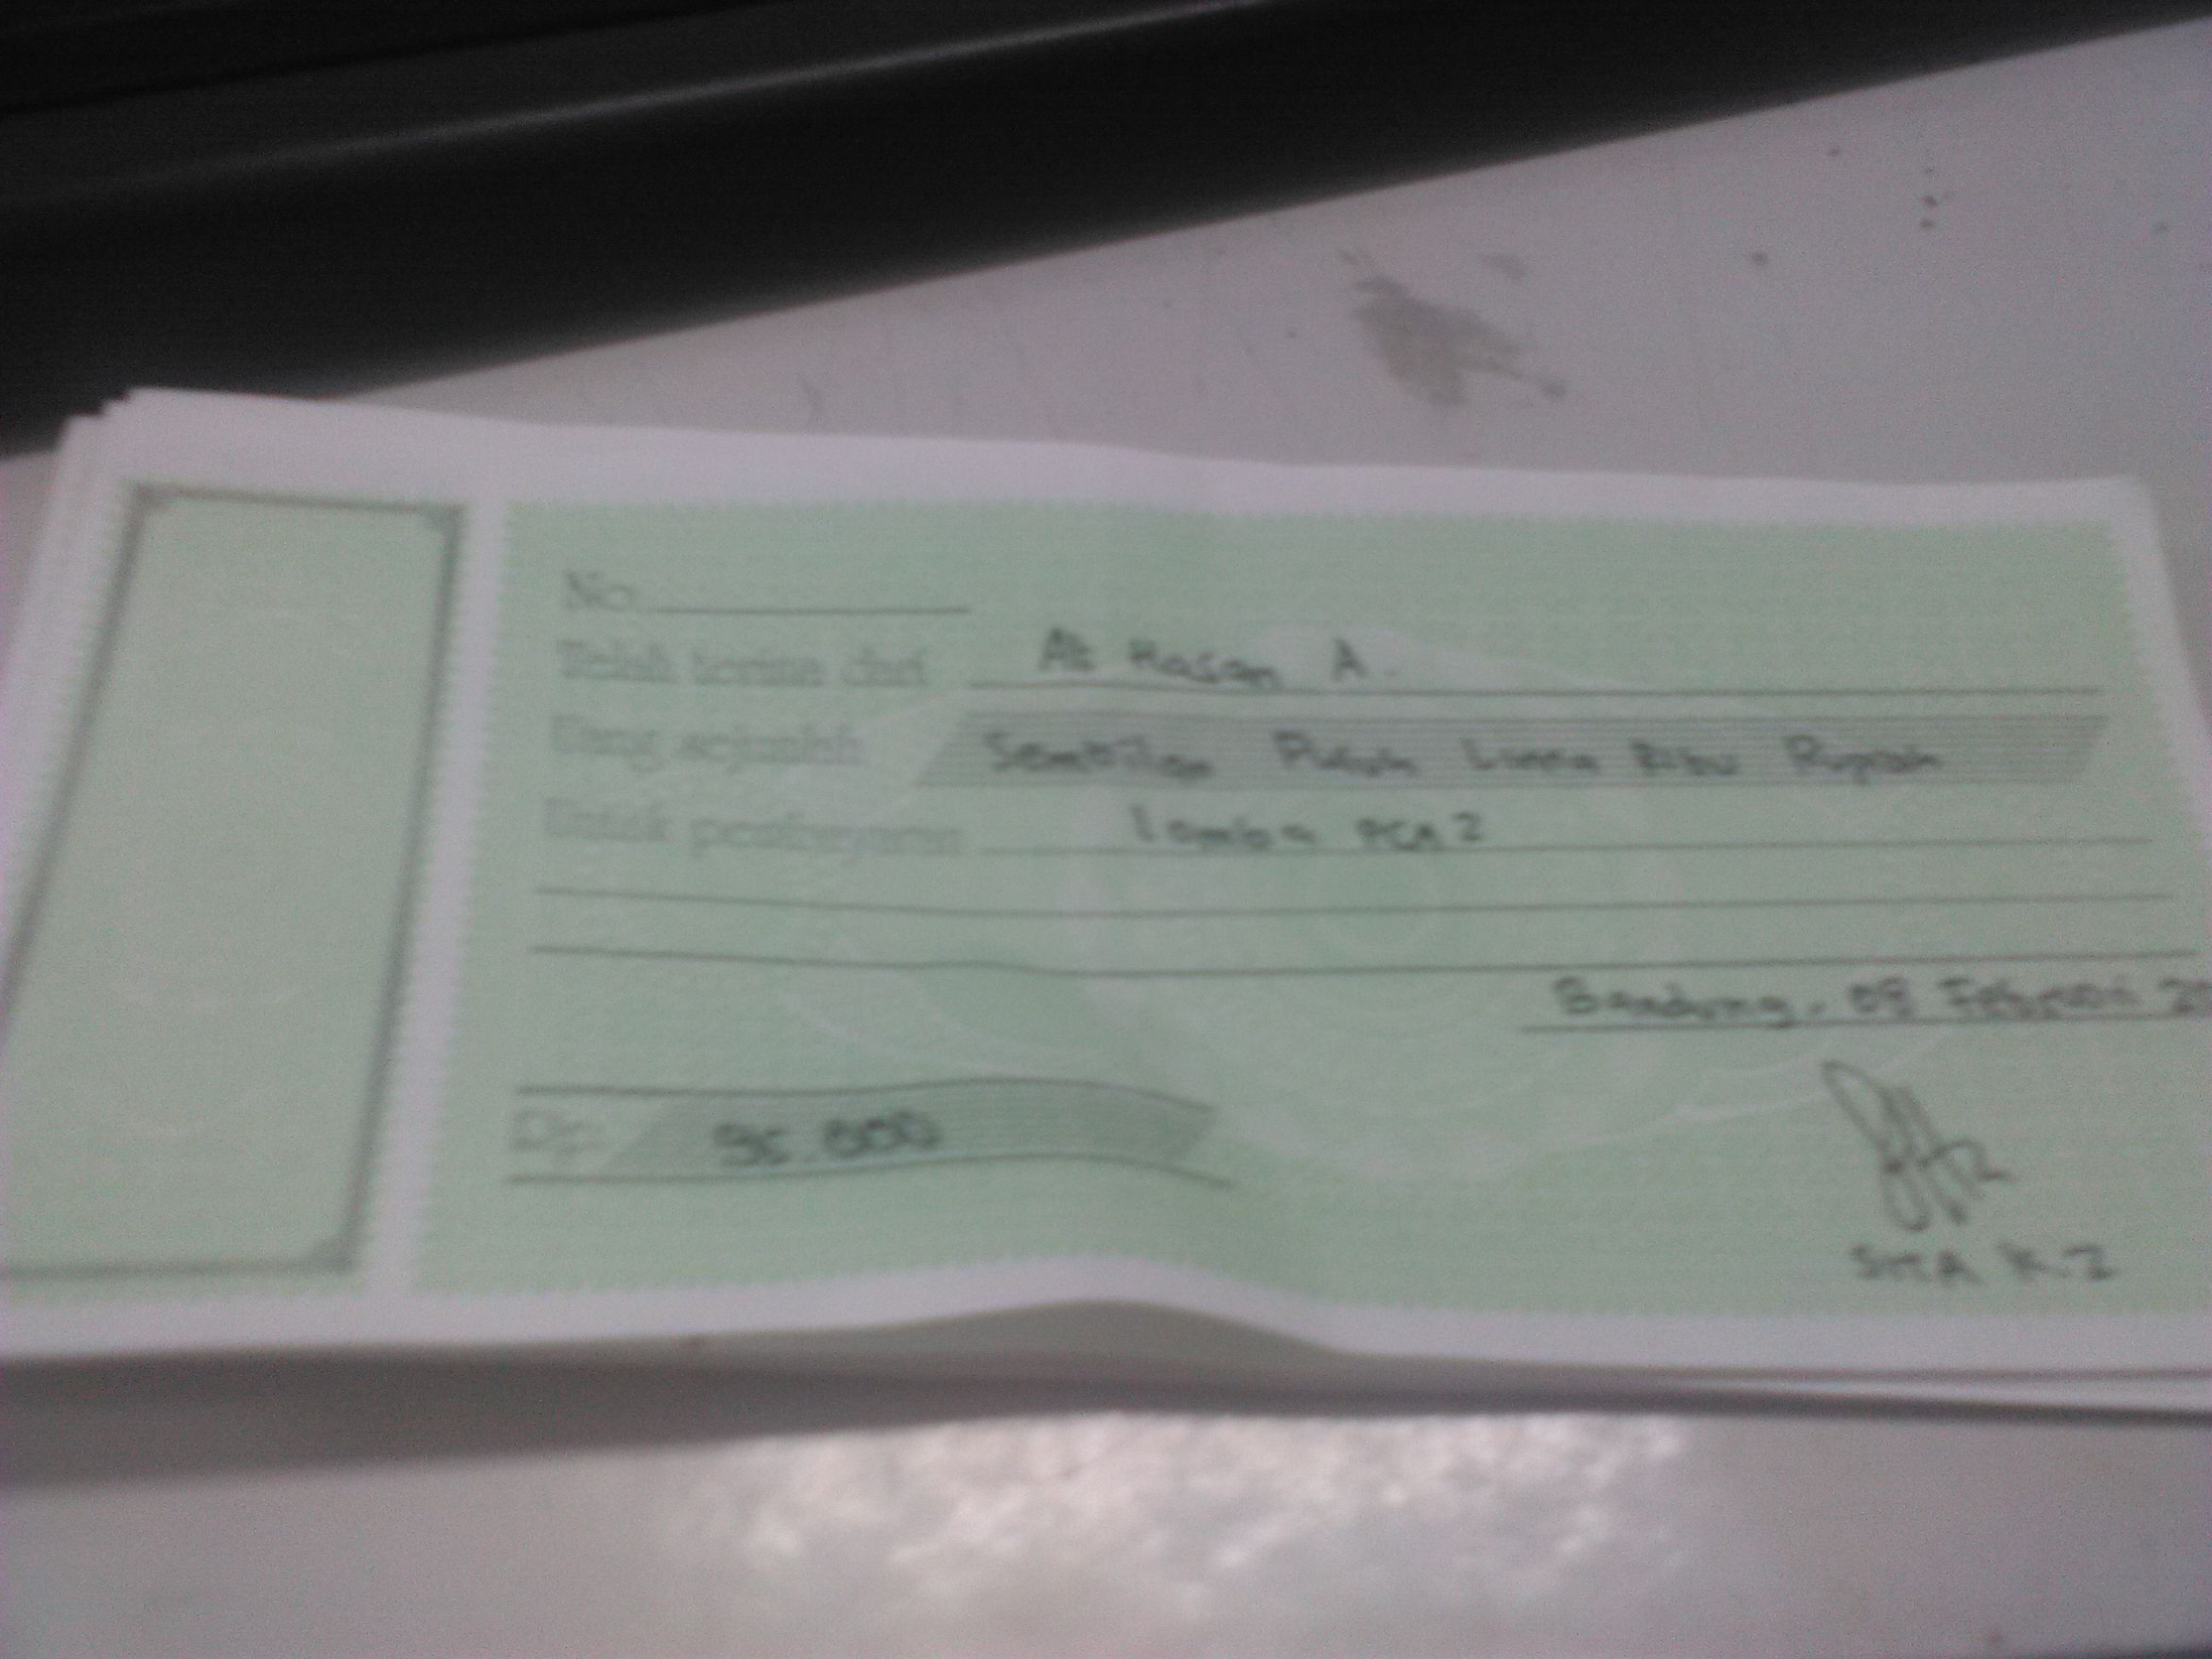 No.
Telah terima dari Ali Hasan A.
Uang sejumlah Sembilan Puluh Lima Ribu Rupiah
Untuk pembayaran lomba
Bandung, Februari
Rp. 95.000
SITA K.I